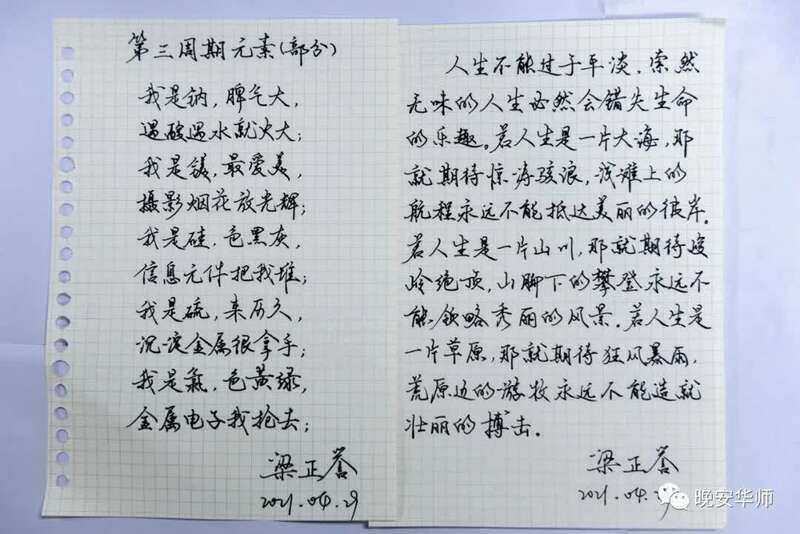 第三周期元素(部分)
我是钠,脾气大,
遇酸遇水就火大;
我是镁,最爱美,
摄影烟花放光辉;
我是硅,色黑灰,
信息元件把我堆;
我是硫,来历久,
沉淀金属很拿手;
我是氯,色黄绿,
金属电子我抢去;
梁正誉
2021.04.29
人生不能过于平淡,索然
无味的人生必然会错失生命
的乐趣。若人生是一片大海,那
就期待惊涛骇浪,浅滩上的
航程永远不能抵达美丽的彼岸。
若人生是一片山川,那就期待峻
岭绝顶,山脚下的攀登永远不
能领略秀丽的风景。若人生是
一片草原,那就期待狂风暴雨,
荒原边的游牧永远不能造就
壮丽的搏击。
梁正誉
2021.04.29
晚安华师